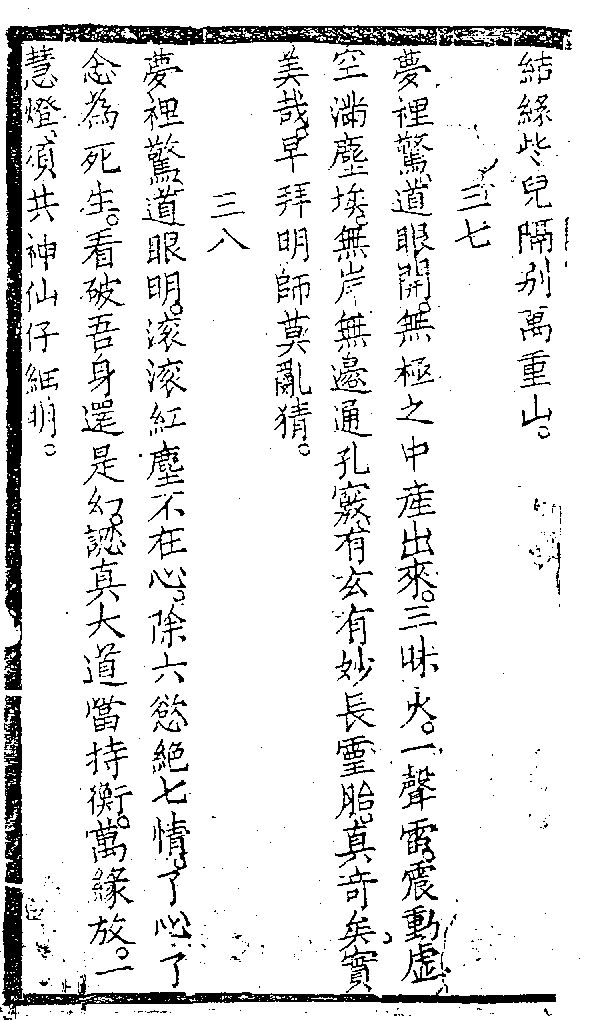 結緣些兒隔別萬重山。
三七
夢裡驚道眼開。無極之中產出來。三昧火。一聲雷。震動虛
空滿塵埃。無岸無邊通孔竅。有玄有妙長靈胎。真奇矣。實
美哉。早拜明師莫亂猜。
三八
夢裡驚道眼明。滚滚紅塵不在心。除六慾絕七情。了心了
念為死生。看破吾身還是幻。認真大道當持衡。萬緣放。一
慧燈。須共神仙仔細明。